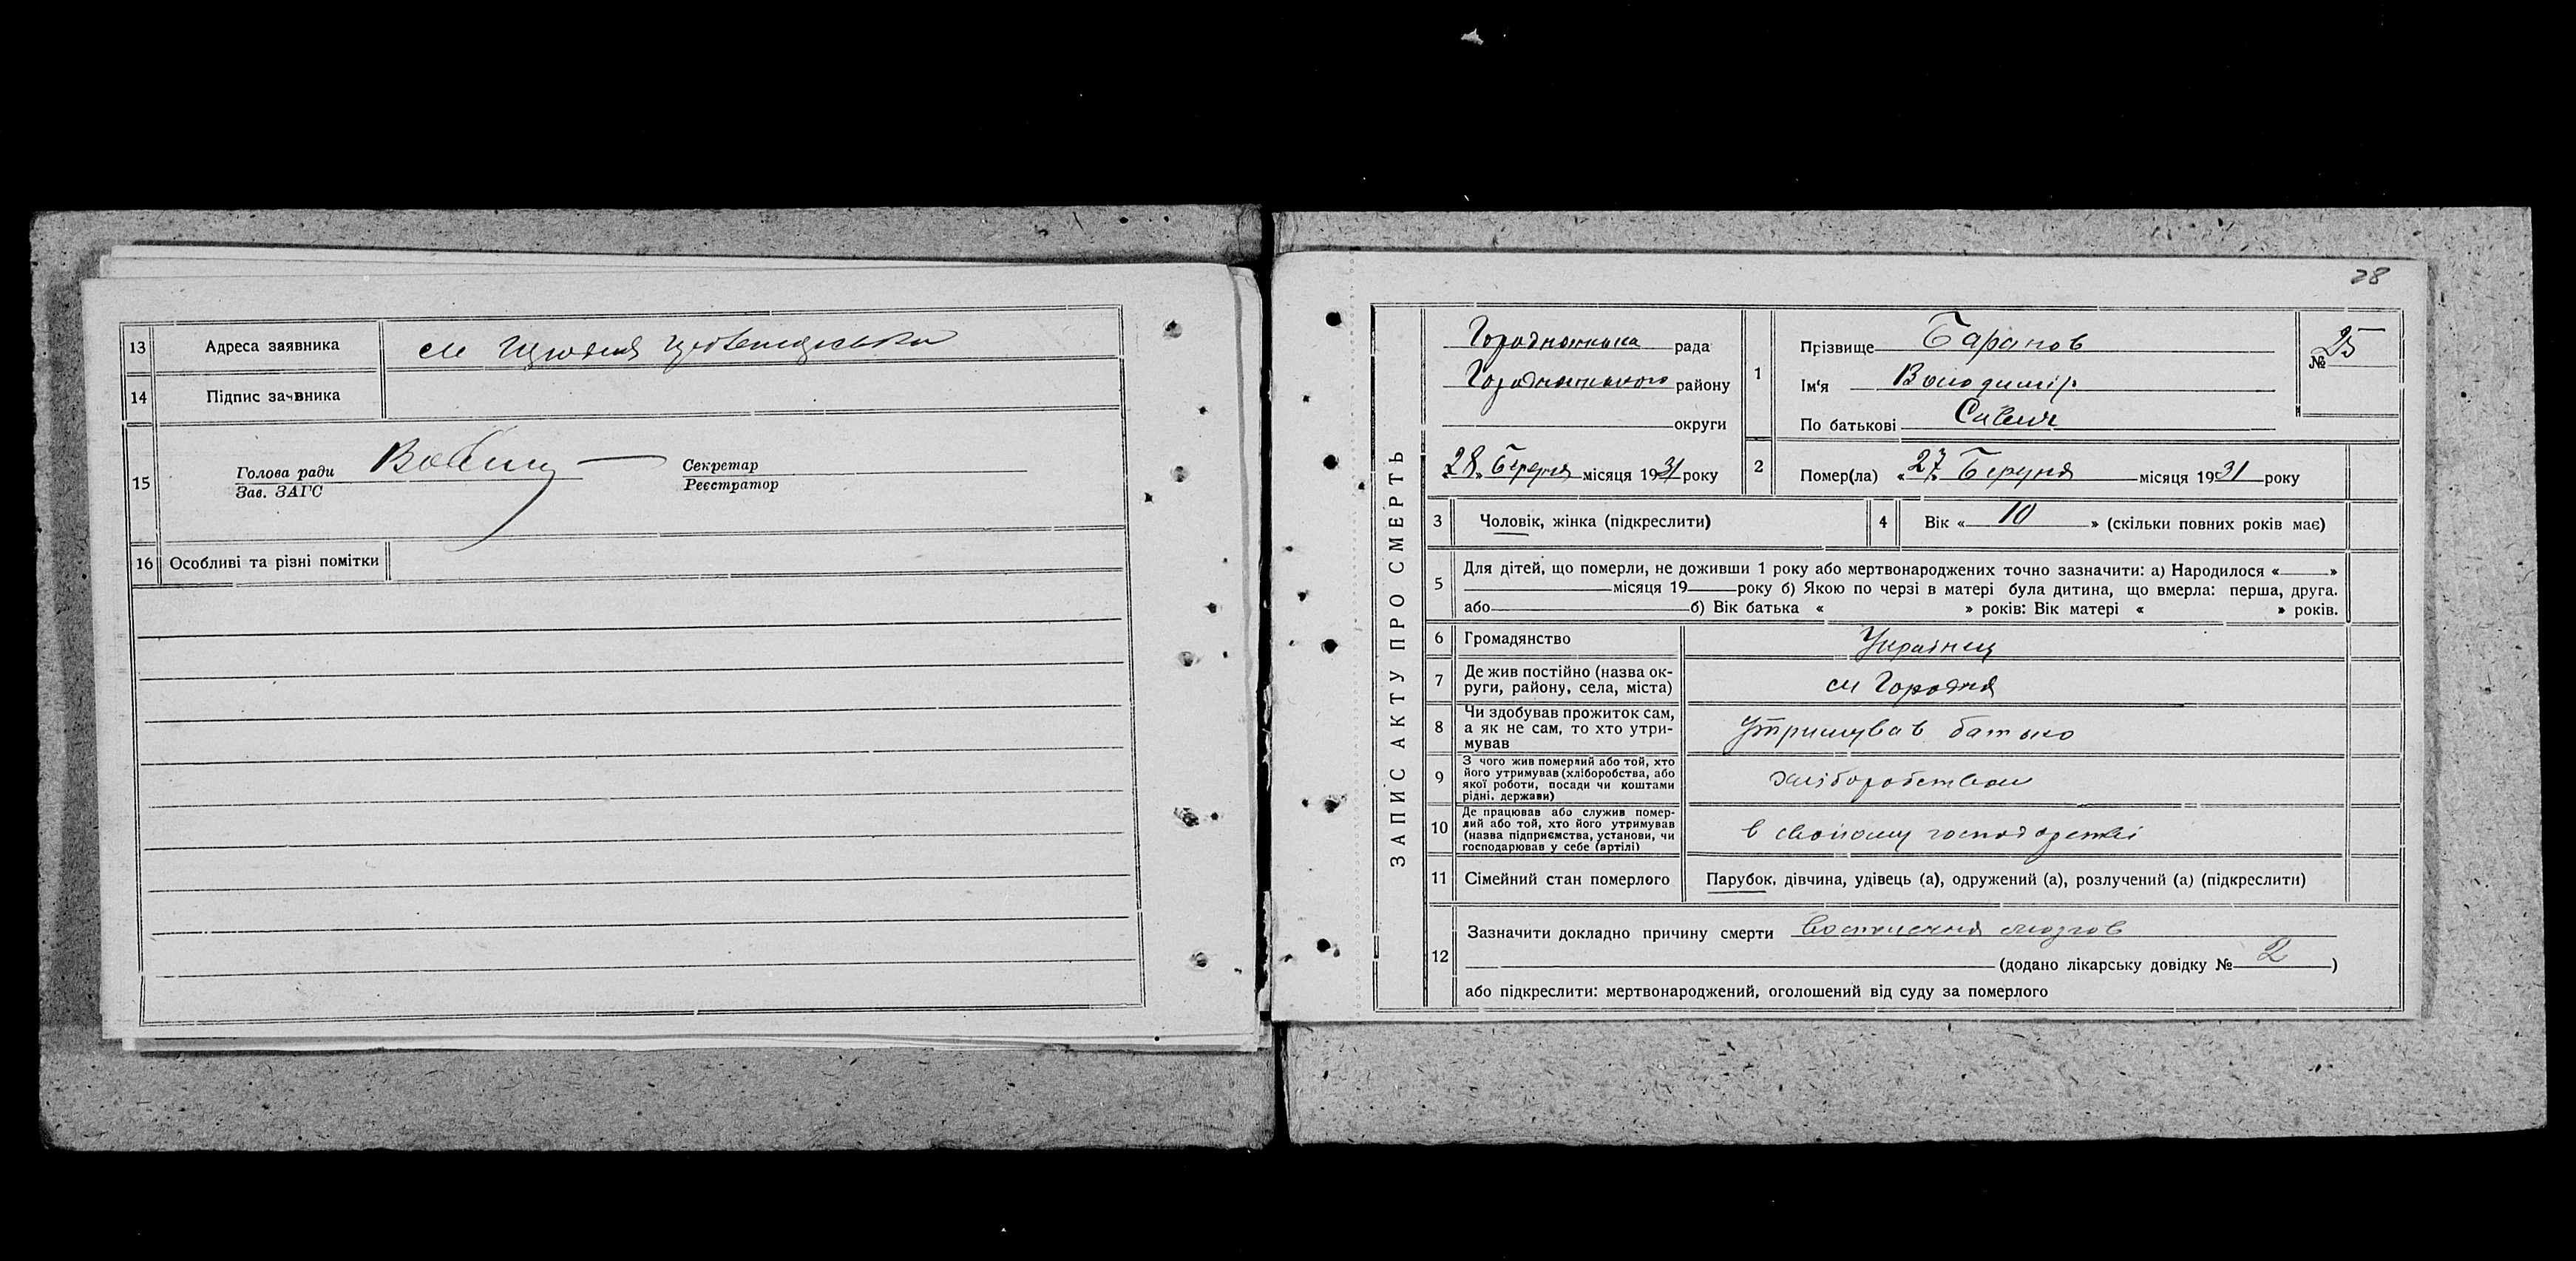 13 Адреса заявника см
14 Підпис заявника
15 Голова ради
Зав. ЗАГС
Секретар
Реєстратор
16 Особливі та різні помітки
28
ЗАПИС АКТУ ПРО СМЕРТЬ
Городнянська рада
Городнянського району
округи
«28» Березня місяця 1931 року
1 Прізвище Баранов
Ім'я Володимір
По батькові Савич
№ 25
2 Помер(ла) «27» Березня місяця 1931 року
3 Чоловік, жінка (підкреслити)
4 Вік « 10 » (скільки повних років має)
5 Для дітей, що померли, не доживши 1 року або мертвонароджених точно зазначити: а) Народилося « »
місяця 19 року б) Якою по черзі в матері була дитина, що вмерла: перша, друга.
або б) Вік батька « » років: Вік матері « » років.
6 Громадянство Українец
7 Де жив постійно (назва ок-
руги, району, села, міста) см Городня
8 Чи здобував прожиток сам,
а як не сам, то хто утри-
мував Утримував батько
9 З чого жив померлий або той, хто
його утримував (хліборобства, або
якої роботи, посади чи коштами
рідні, держави) хліборобством
10 Де працював або служив помер-
лий або той, хто його утримував
(назва підприємства, установи, чи
господарював у себе (артілі) в свойому господарстві
11 Сімейний стан померлого Парубок, дівчина, удівець (а), одружений (а), розлучений (а) (підкреслити)
12 Зазначити докладно причину смерти мозгов
(додано лікарську довідку № 2 )
або підкреслити: мертвонароджений, оголошений від суду за померлого